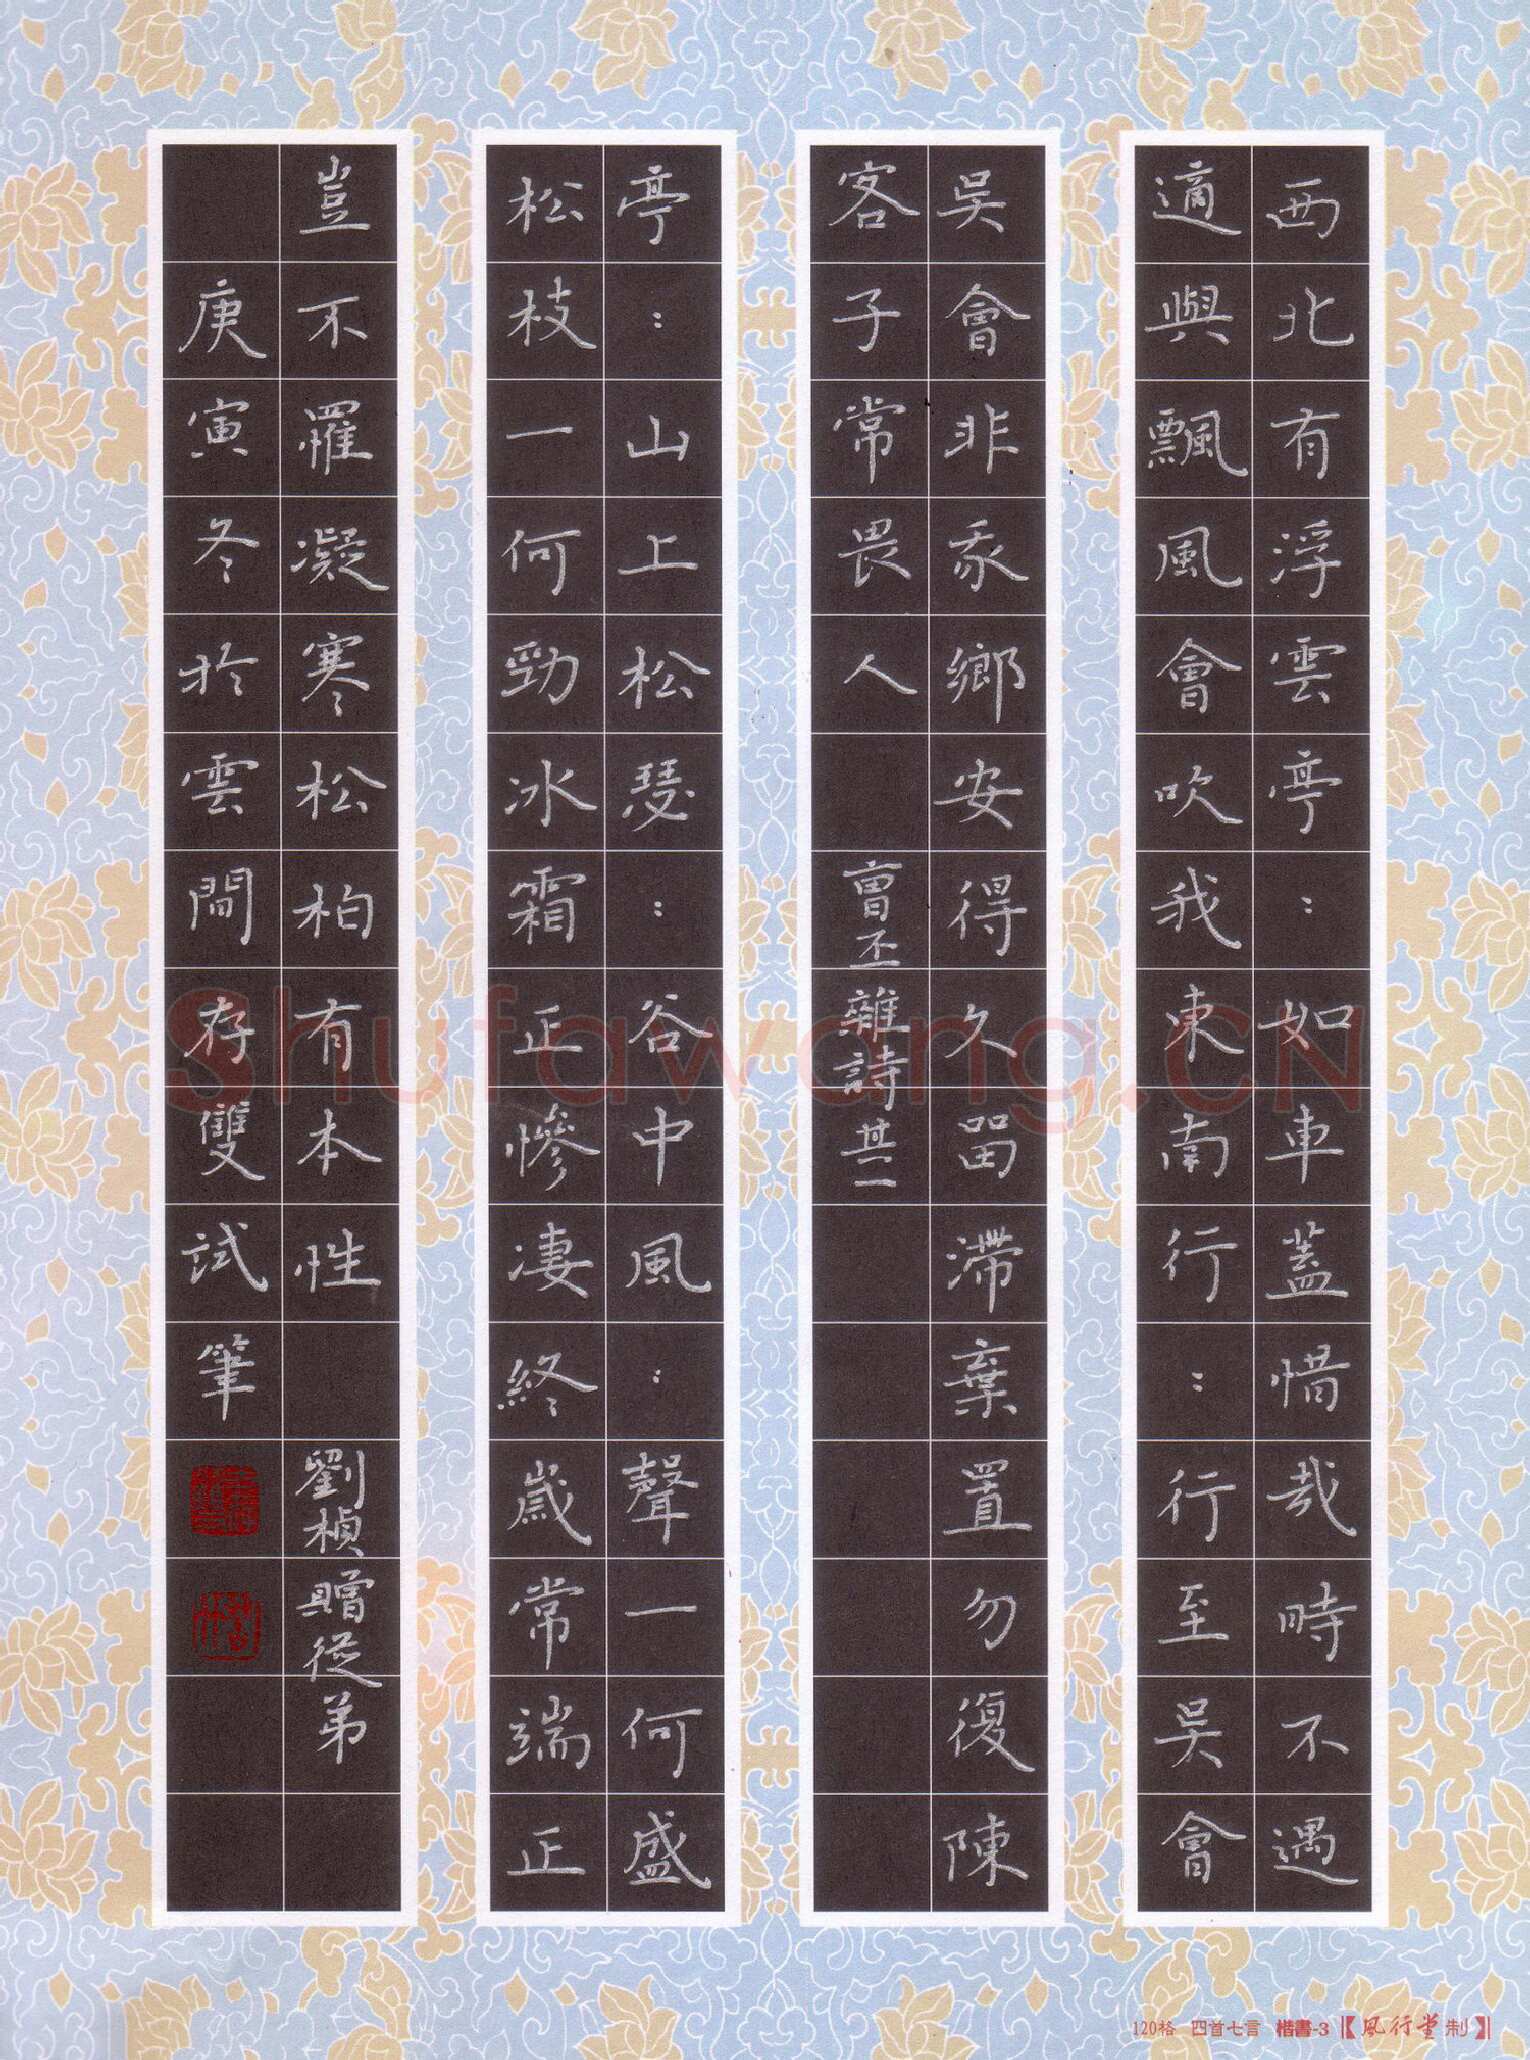 西北有浮雲亭：如車蓋惜哉時不遇
適與飄風會吹我東南行：行至吳會
吳會非我鄉安得久留滯棄置勿復陳
客子常畏人 曹丕雜詩其二
亭：山上松瑟：谷中風：聲一何盛
松枝一何勁冰霜正慘凄終歲常端正
豈不罹凝寒松柏有本性 劉楨贈從弟
庚寅冬於雲間存雙試筆
Shufawang.CN
120格 四首七言 楷書-3 【風行堂制】